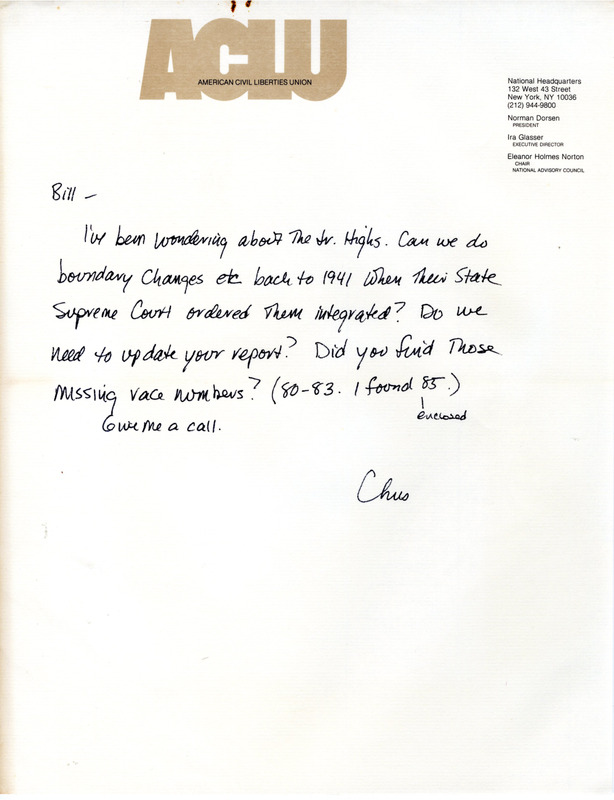 ACLU
AMERICAN CIVIL LIBERTIES UNION
National Headquarters
132 West 43 Street
New York, NY 10036
(212) 944-9800
Norman Dorsen
PRESIDENT
Ira Glasser
EXECUTIVE DIRECTOR
Eleanor Holmes Norton
CHAIR
NATIONAL ADVISORY COUNCIL
Bill —
I've been wondering about The Jr. Highs. Can we do
boundary Changes etc back to 1941 when Their State
Supreme Court ordered Them integrated? Do we
need to update your report? Did you find Those
missing race numbers? (80-83. I found 85.)
enclosed
Give me a call.
Chris